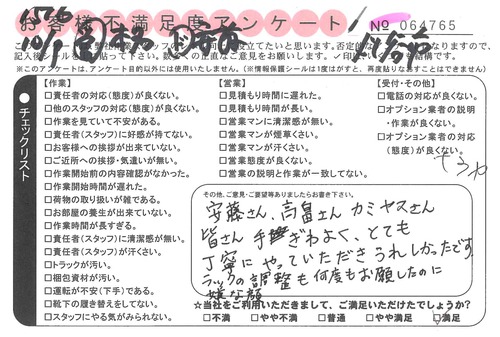 お客様不満足度アンケート
No 064765
※このアンケートは、アンケート目的以外には使用いたしません。(※情報保護シールは1度はがすと、再度貼りなおすことはできません)
チェックリスト
【作業】
□責任者の対応(態度)が良くない。
□他のスタッフの対応(態度)が良くない。
□作業を見ていて不安がある。
□責任者(スタッフ)に好感が持てない。
□お客様への挨拶が出来ていない。
□ご近所への挨拶・気遣いが無い。
□作業開始前の内容確認がなかった。
□作業開始時間が遅れた。
□荷物の取り扱いが雑である。
□お部屋の養生が出来ていない。
□作業時間が長すぎる。
□責任者(スタッフ)に清潔感が無い。
□責任者(スタッフ)が汗くさい。
□トラックが汚い。
□梱包資材が汚い。
□運転が不安(下手)である。
□靴下の履き替えをしてない。
□スタッフにやる気がみられない。
【営業】
□見積もり時間に遅れた。
□見積もり時間が長い。
□営業マンに清潔感が無い。
□営業マンが煙草くさい。
□営業マンが汗くさい。
□営業態度が良くない。
□営業の説明と作業が一致してない。
【受付・その他】
□電話の対応が良くない。
□オプション業者の説明
・作業が良くない。
□オプション業者の対応
(態度)が良くない。
その他、ご意見・ご要望等ありましたらお書き下さい。
安藤さん、高畠さん カミヤスさん
皆さん 手際ぎわよく、とても
丁寧に やっていただき うれしかったです。
ラックの調整も何度もお願したのに
嫌な顔
☆当社をご利用いただきまして、ご満足いただけたでしょうか?
□不満 □やや不満 □普通 □やや満足 □満足